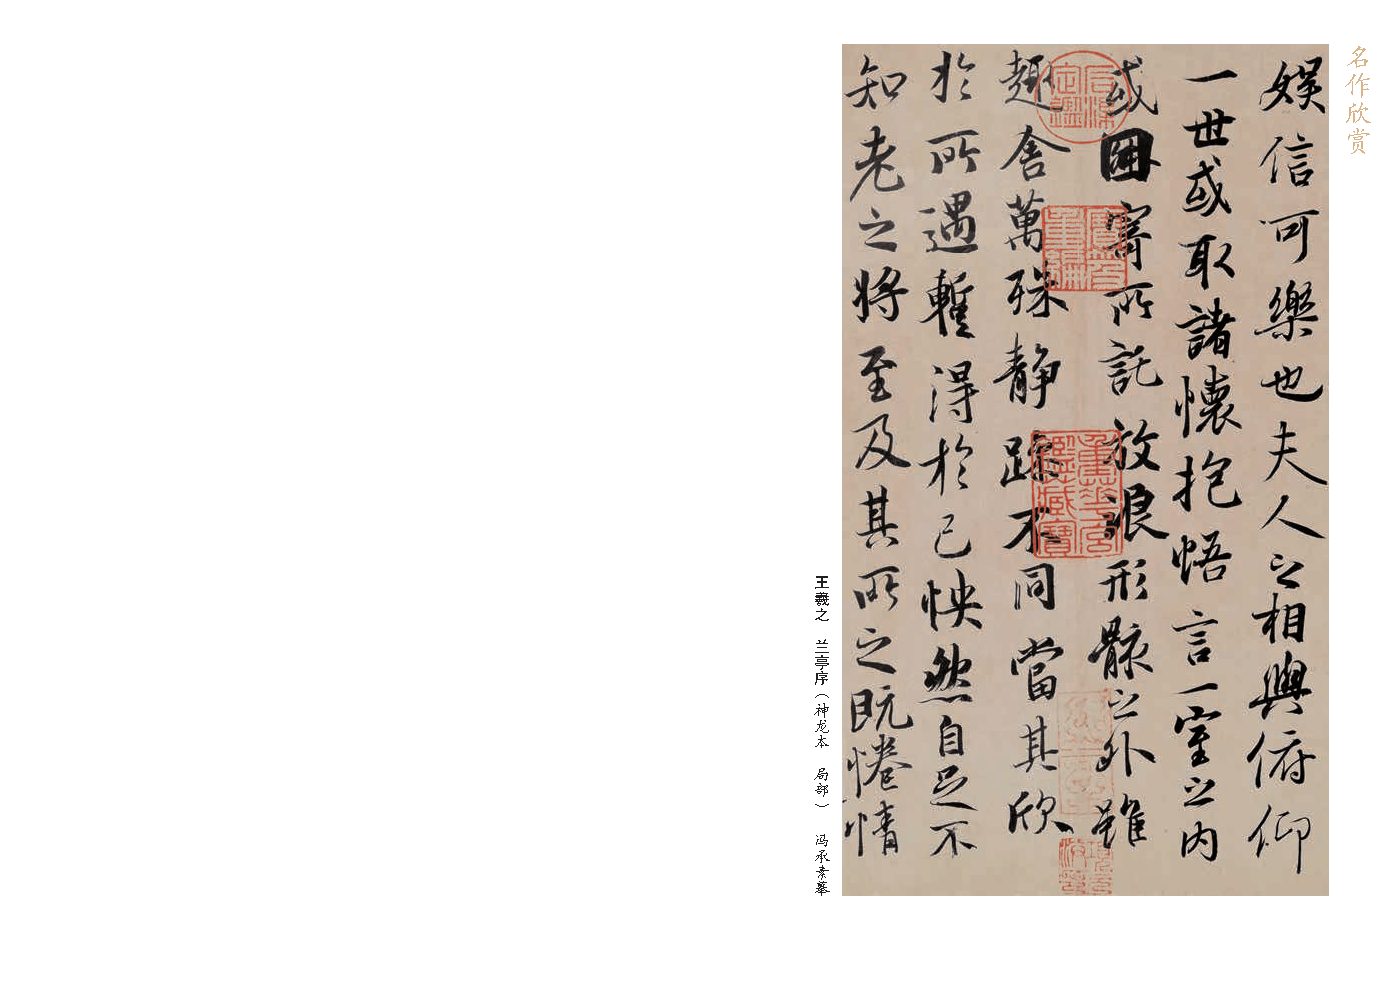 名作欣赏
娱信可樂也夫人之相與俯仰
一世或取諸懷抱悟言一室之内
或因寄所託放浪形骸之外雖
趣舍萬殊静躁不同當其欣
於所遇蹔得於己怏然自足不
知老之將至及其所之既惓情
王羲之 兰亭序（神龙本 局部） 冯承素摹